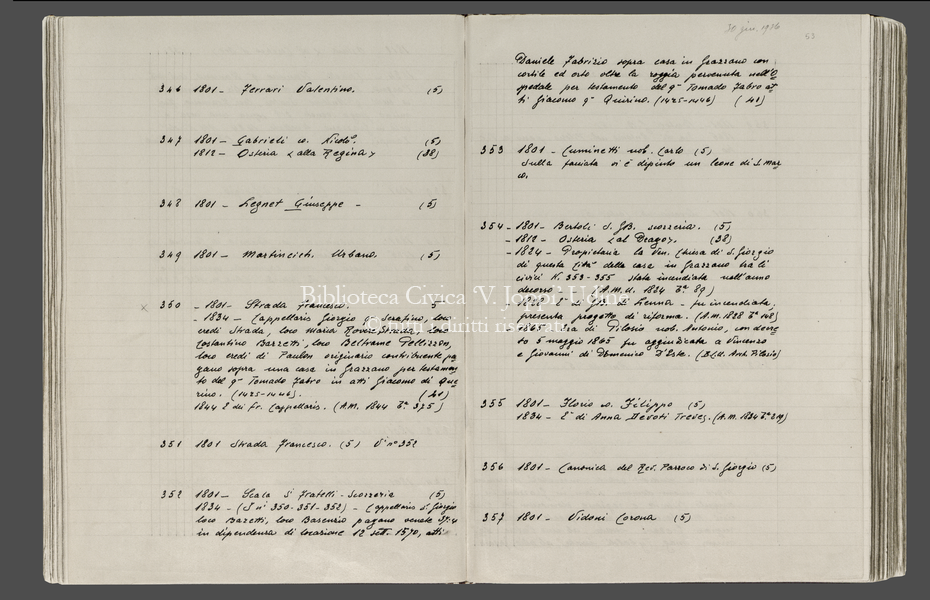 346 1801 - Ferrari Valentino. (5)
347 1801 - Gabrieli co. Nicolò. (5)
1812 - Osteria "alla Regina" (38)
348 1801 - Legnet Giuseppe - (5)
349 1801 - Martincich Urbano. (5)
350 - 1801 - Strada Francesco. (5)
- 1834 - Cappellaris Giorgio Serafino, loco
eredi Strada, loco Maria Strada, loco
Costantino Barzetti, loco Beltrame Pellizzon,
loco eredi di Paulon originario contribuente pa
gano sopra una casa in Grazzano per testamen
to del qm Tomado Fabro in atti Giacomo di Que
rino. (1425-1446). (41)
1844 È di Fr. Cappellaris. (A.M. 1844 375)
351 1801 Strada Francesco. (5) V. n° 352
352 1801 - Scala Fratelli - Scorzeria (5)
1834 - (S. n° 350-351-352) - Cappellaris Giorgio
loco Barzetti, loco pagano venete
in dipendenza di locazione 12 sett. 1570, atti
30 giu. 1936
53
Daniele Fabrizio sopra casa in Grazzano con
cortile ed orto oltre la roggia pervenuta nell'O
spedale per testamento del qm Tomado Fabro at
ti Giacomo qm Quirino. (1425-1446) (41)
353 1801 - Cuminetti nob. Carlo (5)
Sulla facciata vi è dipinto un leone di S. Mar
co.
354 - 1801 - Bertoli G.B. scorzeria. (5)
- 1812 - Osteria "al Drago". (38)
- 1824 - Proprietaria la Ven. Chiesa di S. Giorgio
di questa Città della casa in Grazzano tra li
civici N. 353-355 stata incendiata nell'anno
decorso - (A.M.U. 1824 89)
- 1828 È di - fu incendiata.
presenta progetto di riforma. (A.M. 1828 148)
1865 - Era di Pilosio nob. Antonio, con decre
to 5 maggio 1865 fu aggiudicata a Vincenzo
e Giovanni di Domenico D'Este. (B.C.U. Arch. Pilosio)
355 1801 - Florio co. Filippo (5)
1834 - È di Anna Devoti Treves. (A.M. 1834)
356 1801 - Canonica del Rev. Parroco di S. Giorgio (5)
357 1801 - Vidoni Corona (5)
Biblioteca Civica 'V. Joppi' Udine
© tutti i diritti riservati